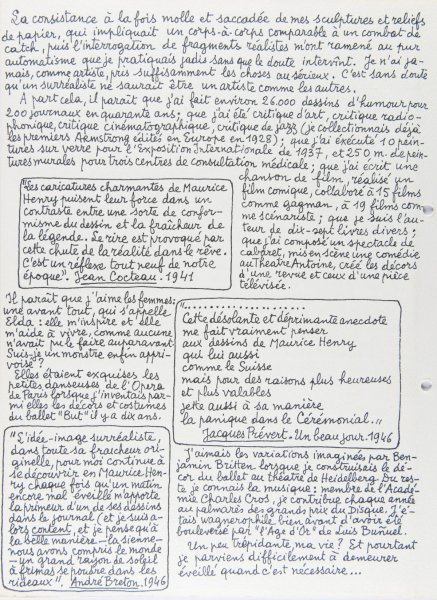 La consistance à la fois molle et saccadée de mes sculptures et reliefs
de papier, qui impliquait un corps-à-corps comparable à un combat de
catch, puis l'interrogation de fragments réalistes m'ont ramené au pur
automatisme que je pratiquais jadis sans que le doute intervînt. Je n'ai ja-
mais, comme artiste, pris suffisamment les choses au sérieux. C'est sans doute
qu'un surréaliste ne saurait être un artiste comme les autres.
A part cela, il paraît que j'ai fait environ 26.000 dessins d'humour pour
200 journaux en quarante ans; que j'ai été critique d'art, critique radio-
phonique, critique cinématographique, critique de jazz (je collectionnais déjà
les premiers Armstrong édités en Europe en 1928); que j'ai exécuté 10 pein-
tures sur verre pour l'Exposition Internationale de 1937, et 250 m. de pein-
tures murales pour trois centres de consultation médicale; que j'ai écrit une
chanson de film, réalisé un
film comique, collaboré à 15 films
comme gagman, à 19 films com-
me scénariste; que je suis l'au-
teur de dix-sept livres divers;
que j'ai composé un spectacle de
cabaret, mis en scène une comédie
au Théâtre Antoine, créé les décors
d'une revue et ceux d'une pièce
télévisée.
"Les caricatures charmantes de Maurice
Henry puisent leur force dans un
contraste entre une sorte de confor-
misme du dessin et la fraîcheur de
la légende. Le rire est provoqué par
cette chute de la réalité dans le rêve.
C'est un réflexe tout neuf de notre
époque". Jean Cocteau. 1941
Il paraît que j'aime les femmes:
une avant tout, qui s'appelle
Elda: elle m'inspire et elle
m'aide à vivre, comme aucune
n'avait pu le faire auparavant.
Suis-je un monstre enfin appri-
voisé?
Elles étaient exquises les
petites danseuses de l'Opéra
de Paris lorsque j'inventais par-
mi elles les décors et costumes
du ballet "But" il y a dix ans.
"..................
Cette désolante et déprimante anecdote
me fait vraiment penser
aux dessins de Maurice Henry
qui lui aussi
comme le Suisse
mais pour des raisons plus heureuses
et plus valables
jette aussi à sa manière
la panique dans le Cérémonial."
Jacques Prévert. Un beau jour. 1946
"L'idée-image surréaliste,
dans toute sa fraîcheur ori-
ginelle, pour moi continue à
se découvrir en Maurice Hen-
ry chaque fois qu'un matin
encore mal éveillé m'apporte
la primeur d'un de ses dessins
dans le journal (et je suis a-
lors content, et je pense qu'à
la belle manière – la sienne –
nous avons compris le monde
– un grand rayon de soleil
à frimas se poudre dans les
rideaux". André Breton. 1946
J'aimais les variations imaginées par Ben-
jamin Britten lorsque je construisis le dé-
cor du ballet au théâtre de Heidelberg. Du res-
te, je connais la musique: membre de l'Acadé-
mie Charles Cros, je contribue chaque année
au palmarès des grands prix du Disque. J'é-
tais wagnérophile bien avant d'avoir été
bouleversé par "l'Age d'Or" de Luis Buñuel.
Un peu trépidante, ma vie? Et pourtant
je parviens difficilement à demeurer
éveillé quand c'est nécessaire...